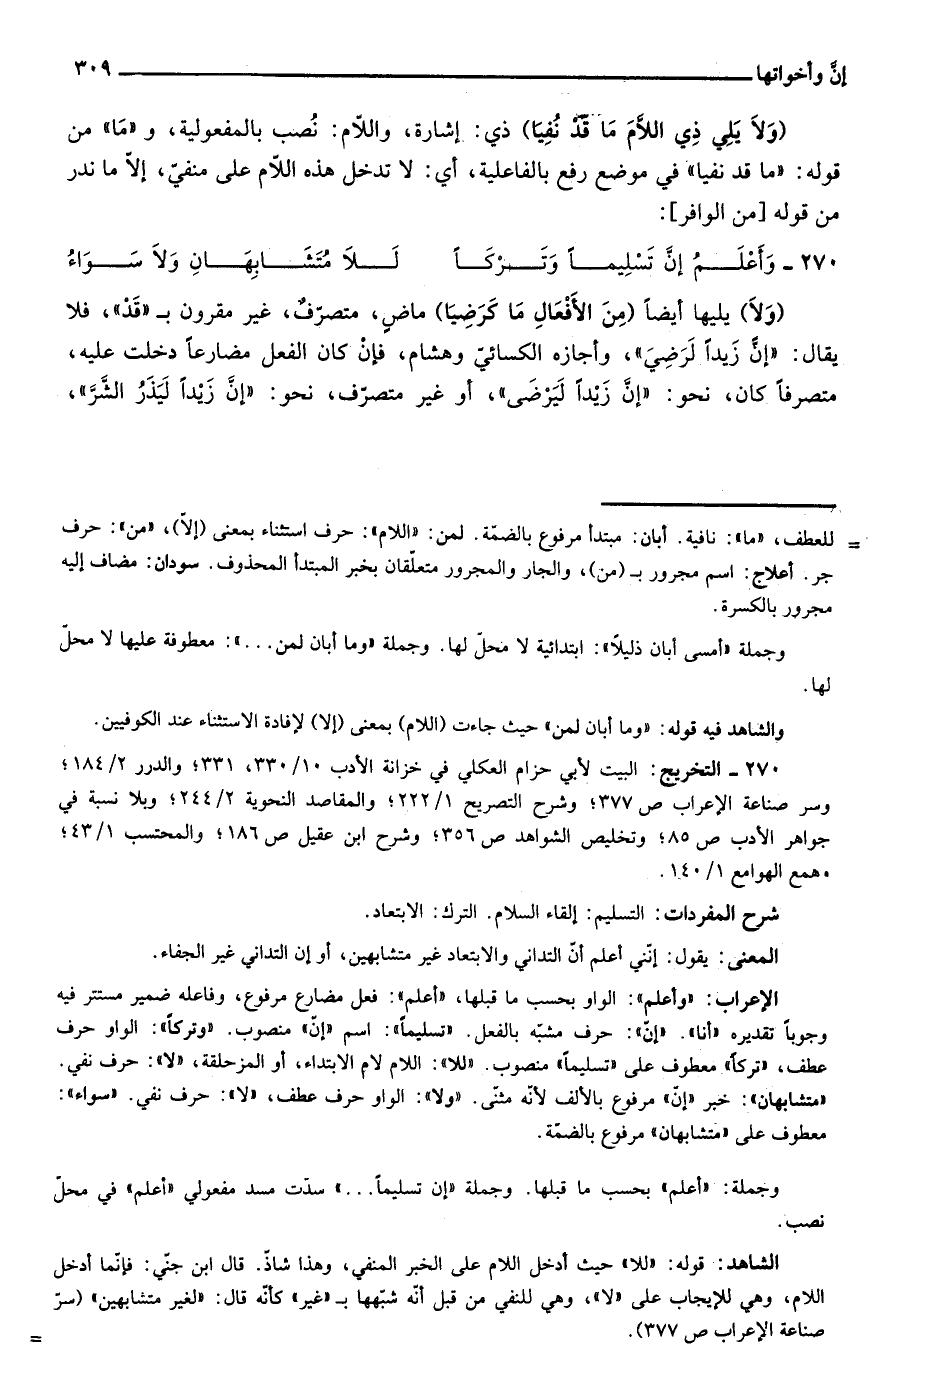 إنَّ وأخواتها ٣٠٩
(وَلاَ يَلِي ذِي اللاَّمَ مَا قَدْ نُفِيَا) ذي: إشارة، واللّام: نُصب بالمفعولية، و «مَا» من
قوله: «ما قد نفيا» في موضع رفع بالفاعلية، أي: لا تدخل هذه اللام على منفيّ، إلاّ ما ندر
من قوله [من الوافر]:
٢٧٠ ـ وَأَعْلَـــمُ إنَّ تَسْلِيمـــاً وَتَـــرْكَـــاً لَـــلاَ مُتَشَـــابِهَـــانِ وَلاَ سَـــوَاءُ
(وَلاَ) يليها أيضاً (مِنَ الأَفْعَالِ مَا كَرَضِيَا) ماضٍ، متصرّفٌ، غير مقرون بـ «قَدْ»، فلا
يقال: «إنَّ زَيداً لَرَضِيَ»، وأجازه الكسائيّ وهشام، فإنْ كان الفعل مضارعاً دخلت عليه،
متصرفاً كان، نحو: «إنَّ زَيْداً لَيَرْضَى»، أو غير متصرّف، نحو: «إنَّ زَيْداً لَيَذَرُ الشَّرَّ»،
= للعطف، «ما»: نافية. أبان: مبتدأ مرفوع بالضمّة. لمن: «اللام»: حرف استثناء بمعنى (إلاّ)، «من»: حرف
جر. أعلاج: اسم مجرور بـ (من)، والجار والمجرور متعلّقان بخبر المبتدأ المحذوف. سودان: مضاف إليه
مجرور بالكسرة.
وجملة «أمسى أبان ذليلاً»: ابتدائية لا محلّ لها. وجملة «وما أبان لمن...»: معطوفة عليها لا محلّ
لها.
والشاهد فيه قوله: «وما أبان لمن» حيث جاءت (اللام) بمعنى (إلا) لإفادة الاستثناء عند الكوفيين.
٢٧٠ ـ التخريج: البيت لأبي حزام العكلي في خزانة الأدب ١٠/ ٣٣٠، ٣٣١؛ والدرر ٢/ ١٨٤؛
وسر صناعة الإعراب ص ٣٧٧؛ وشرح التصريح ١/ ٢٢٢؛ والمقاصد النحوية ٢/ ٢٤٤؛ وبلا نسبة في
جواهر الأدب ص ٨٥؛ وتخليص الشواهد ص ٣٥٦؛ وشرح ابن عقيل ص ١٨٦؛ والمحتسب ١/ ٤٣؛
وهمع الهوامع ١/ ١٤٠.
شرح المفردات: التسليم: إلقاء السلام. الترك: الابتعاد.
المعنى: يقول: إنّني أعلم أنّ التداني والابتعاد غير متشابهين، أو إن التداني غير الجفاء.
الإعراب: «وأعلم»: الواو بحسب ما قبلها، «أعلم»: فعل مضارع مرفوع، وفاعله ضمير مستتر فيه
وجوباً تقديره «أنا». «إنّ»: حرف مشبّه بالفعل. «تسليماً»: اسم «إنّ» منصوب. «وتركاً»: الواو حرف
عطف، «تركاً» معطوف على «تسليماً» منصوب. «للا»: اللام لام الابتداء، أو المزحلقة، «لا»: حرف نفي.
«متشابهان»: خبر «إنّ» مرفوع بالألف لأنّه مثنّى. «ولا»: الواو حرف عطف، «لا»: حرف نفي. «سواء»:
معطوف على «متشابهان» مرفوع بالضمّة.
وجملة: «أعلم» بحسب ما قبلها. وجملة «إن تسليماً...» سدّت مسد مفعولي «أعلم» في محلّ
نصب.
الشاهد: قوله: «للا» حيث أدخل اللام على الخبر المنفي، وهذا شاذّ. قال ابن جنّي: فإنّما أدخل
اللام، وهي للإيجاب على «لا»، وهي للنفي من قبل أنّه شبّهها بـ «غير» كأنّه قال: «لغير متشابهين» (سرّ
صناعة الإعراب ص ٣٧٧).
=